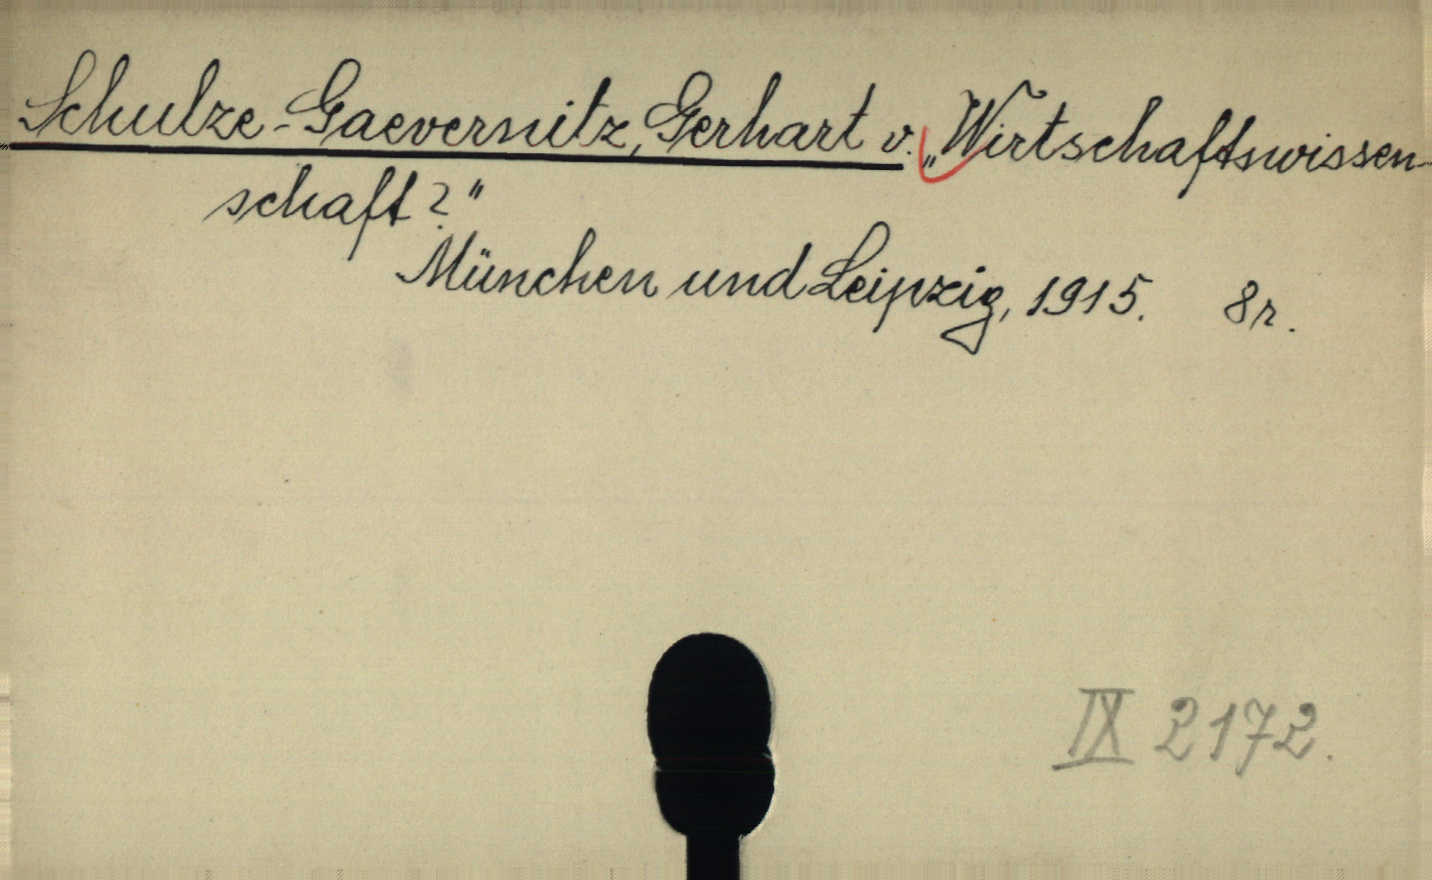 Schulze-Gaevernitz, Gerhart v. „Wirtschaftswissen-
schaft?"
München und Leipzig, 1915. 8r.
IX 2172.